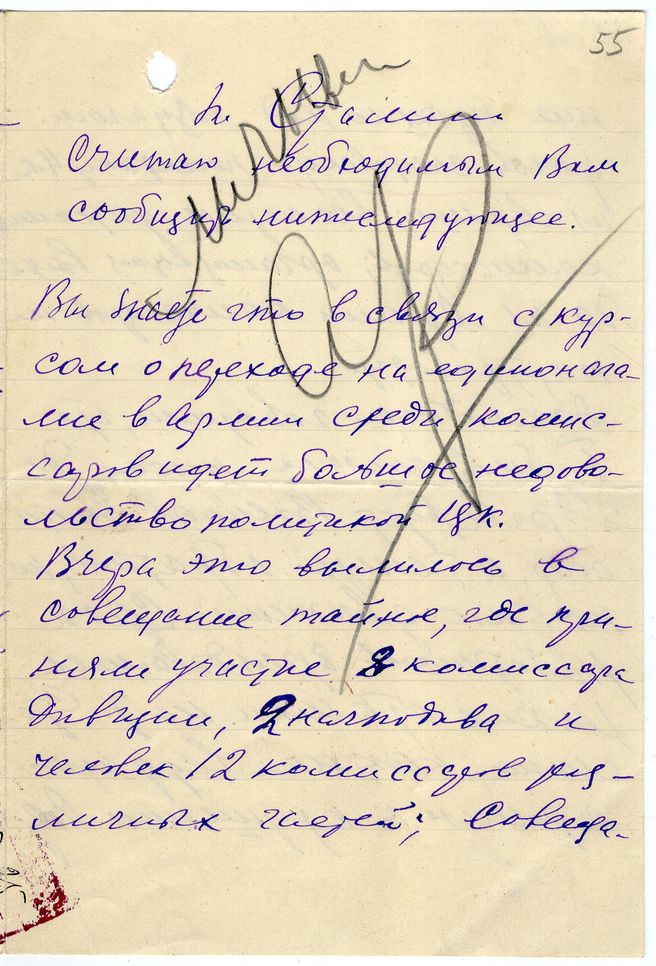 55
т. Сталин
Считаю необходимым Вам
сообщить нижеследующее.
Вы знаете что в связи с кур-
сом о переходе на единонача-
лие в Армии среди комис-
саров идет большое недово-
льство политикой ЦК.
Вчера это вылилось в
совещание тайное, где при-
няли участие 2 комиссара
Дивизии, 2 начподива и
человек 12 комиссаров раз-
личных частей; Совеща-